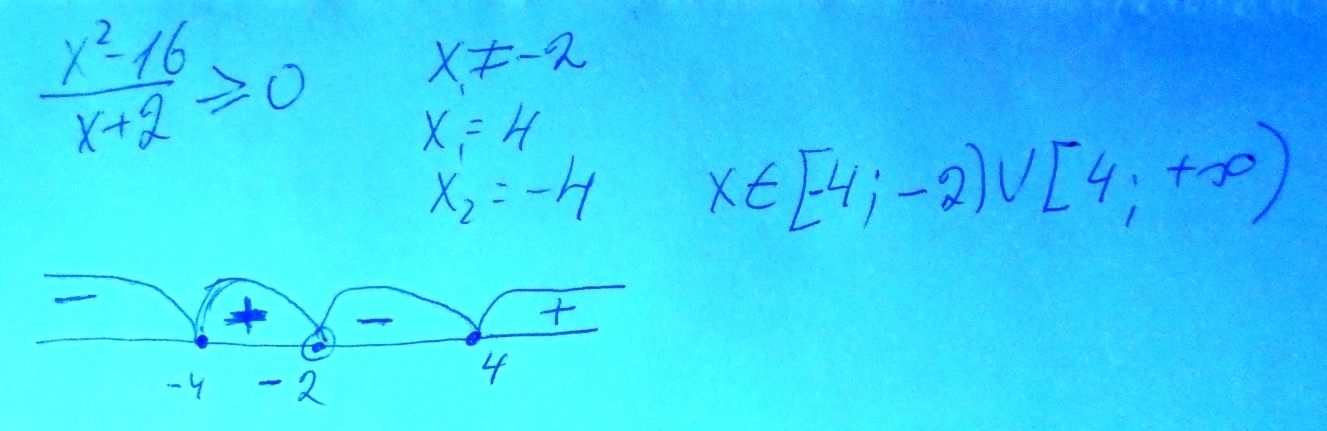 x²-16
x+2 ≥ 0
x₁ ≠ -2
x₁ = 4
x₂ = -4
x ∈ [-4; -2) ∪ [4; +∞)
- + - +
-4 -2 4